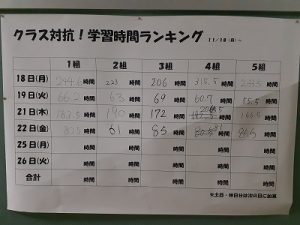 クラス対抗！学習時間ランキング 11/18(月)～
1組 2組 3組 4組 5組
18日(月) 244.6時間 223時間 206時間 315.5時間 時間
19日(火) 66.2時間 63時間 69時間 60.7時間 時間
21日(木) 時間 140時間 172時間 時間 時間
22日(金) 時間 61時間 85時間 時間 時間
25日(月) 時間 時間 時間 時間 時間
26日(火) 時間 時間 時間 時間 時間
合計 時間 時間 時間 時間 時間